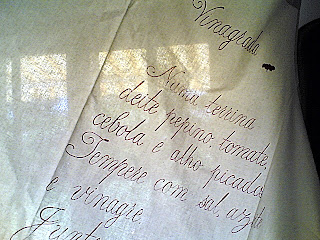 Vinagrada
Numa terrina
deite pepino, tomate
cebola e alho picados
Tempere com sal, azeite
e vinagre